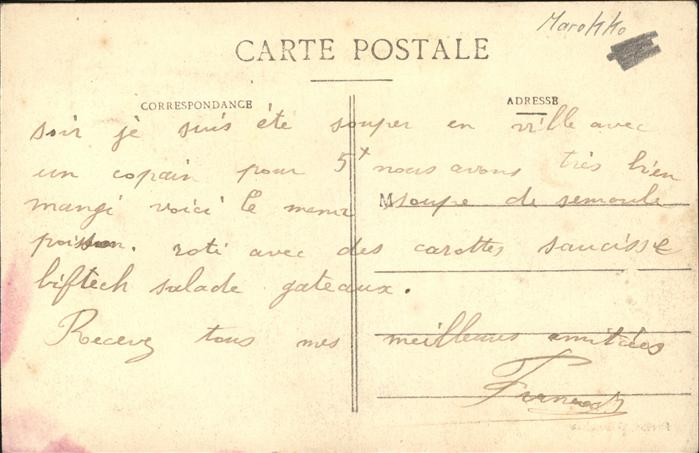 Marokko
CARTE POSTALE
CORRESPONDANCE
ADRESSE
soir je suis été souper en ville avec
un copain pour 5 nous avons très bien
mangi voici le menu
M soupe de semoule
poisson. roti avec des carottes saucisse
biftech salade gateaux.
Recevez tous mes meilleures amitiées